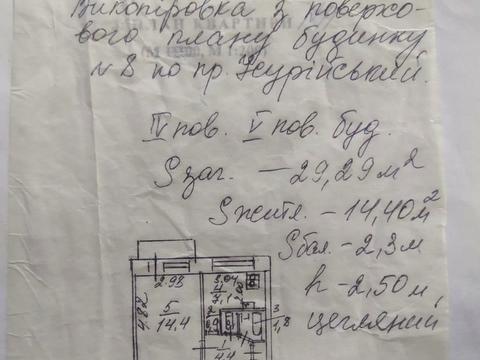 Викопіровка з поверхо-
вого плану будинку
№ 8 по пр.
IV пов. V пов. буд.
S заг. — 29,29 м²
S житл. – 14,40 м²
S бал. – 2,3 м
h – 2,50 м
цегляний
2.98
3,04
4
7,1
4.82
5
14.4
3
1,8
1
4.4